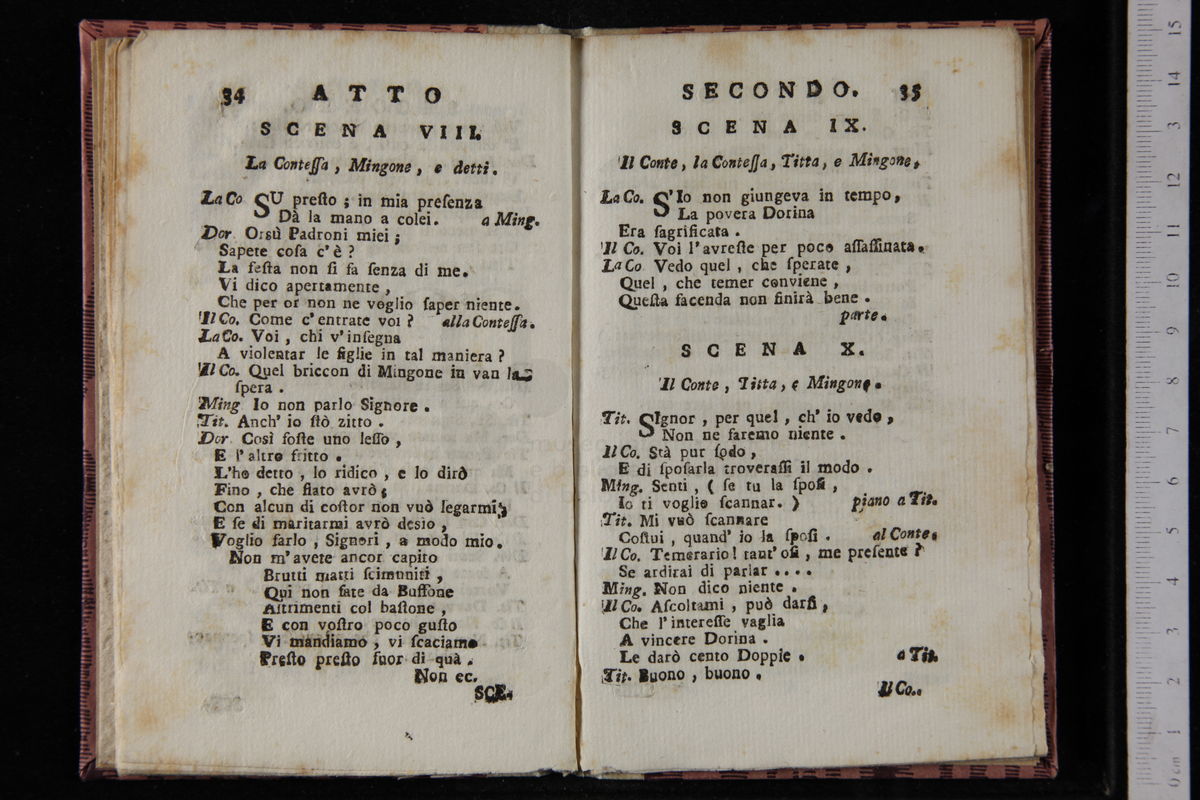 34 ATTO
SCENA VIII.
La Conteſſa, Mingone, e detti.
La Co SU preſto; in mia preſenza
Dà la mano a colei. a Ming.
Dor. Orsù Padroni miei;
Sapete coſa c'è?
La feſta non ſi fa ſenza di me.
Vi dico apertamente,
Che per or non ne voglio ſaper niente.
Il Co. Come c'entrate voi? alla Conteſſa.
La Co. Voi, chi v'inſegna
A violentar le figlie in tal maniera?
Il Co. Quel briccon di Mingone in van la
ſpera.
Ming Io non parlo Signore.
Tit. Anch' io ſtò zitto.
Dor. Così foſte uno leſſo,
E l'altro fritto.
L'ho detto, lo ridico, e lo dirò
Fino, che fiato avrò;
Con alcun di coſtor non vuò legarmi;
E ſe di maritarmi avrò desio,
Voglio farlo, Signori, a modo mio.
Non m'avete ancor capito
Brutti matti ſcimuniti,
Qui non fate da Buffone
Altrimenti col baſtone,
E con voſtro poco guſto
Vi mandiamo, vi ſcaciamo
Preſto preſto fuor di quà.
Non ec.
SCE.
SECONDO. 35
SCENA IX.
Il Conte, la Conteſſa, Titta, e Mingone.
La Co. S'Io non giungeva in tempo,
La povera Dorina
Era ſagrificata.
Il Co. Voi l'avreſte per poco aſſaſſinata.
La Co Vedo quel, che ſperate,
Quel, che temer conviene,
Queſta facenda non finirà bene.
parte.
SCENA X.
Il Conte, Titta, e Mingone.
Tit. SIgnor, per quel, ch' io vedo,
Non ne faremo niente.
Il Co. Stà pur ſodo,
E di ſpoſarla troveraſſi il modo.
Ming. Senti, (ſe tu la ſpoſi,
Io ti voglio ſcannar.) piano a Tit.
Tit. Mi vuò ſcannare
Coſtui, quand' io la ſpoſi. al Conte.
Il Co. Temerario! tant' oſi, me preſente?
Se ardirai di parlar....
Ming. Non dico niente.
Il Co. Aſcoltami, può darſi,
Che l'intereſſe vaglia
A vincere Dorina.
Le darò cento Doppie. a Tit.
Tit. Buono, buono.
Il Co.
0 cm 1 2 3 4 5 6 7 8 9 10 11 12 13 14 15